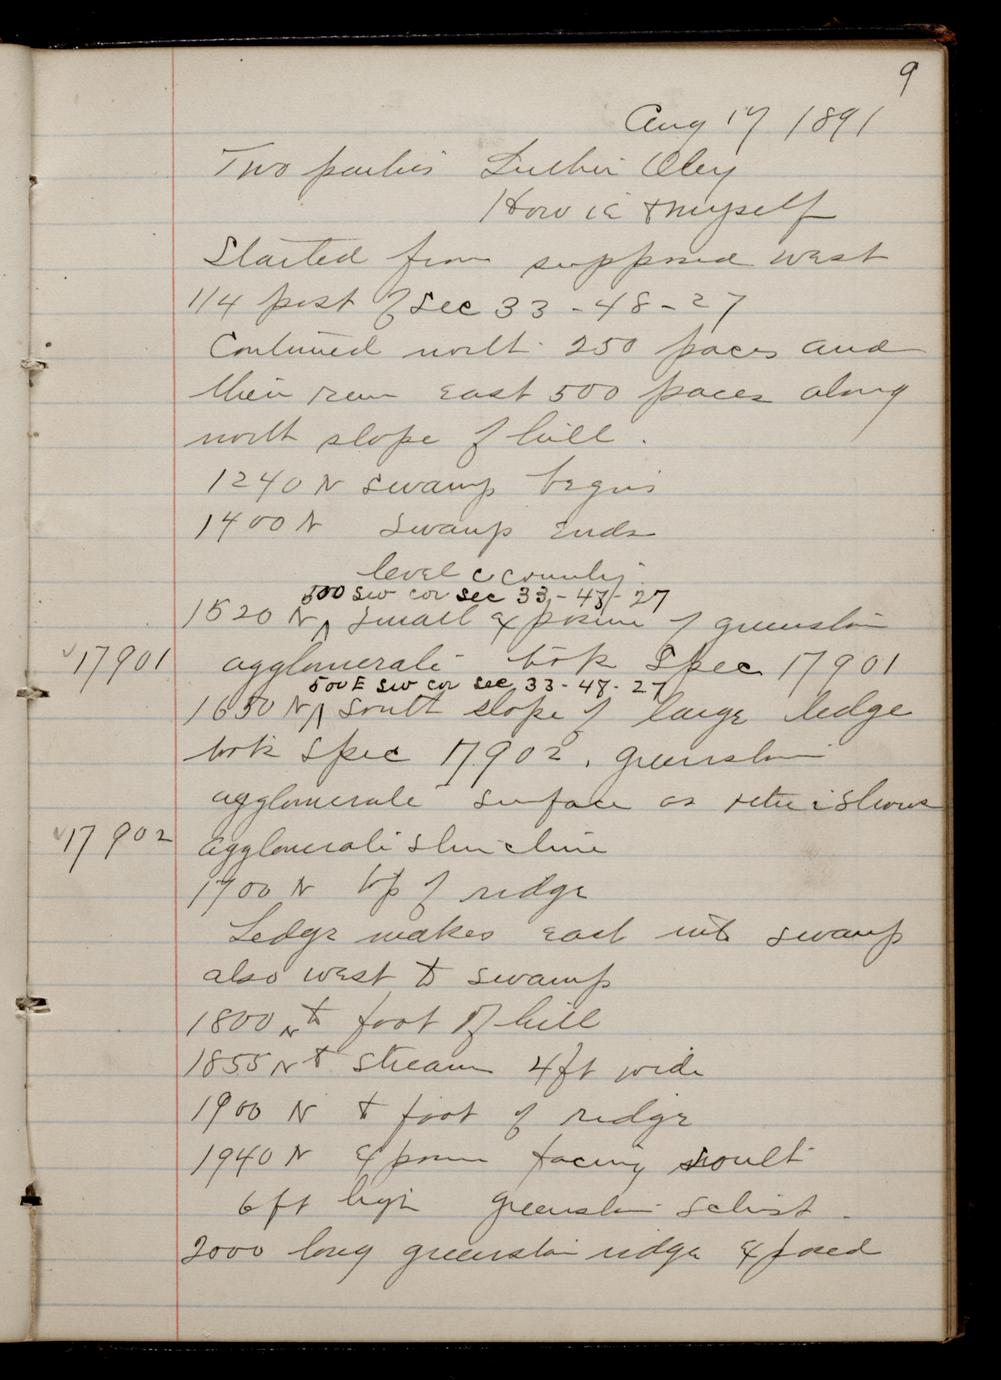 9
Aug 17 1891
Two parties Luther Oley
Howie & myself
Started from supposed west
1/4 post of Sec 33 - 48 - 27
Continued north 250 paces and
then ran east 500 paces along
north slope of hill.
1240 N swamp begins
1400 N swamp ends
level country
500 SW cor Sec 33 - 48 - 27
1520 N ^ Small exposure of greenstone
17901 agglomerate took Spec 17901
500 E SW cor Sec 33 - 48 - 27
1650 N ^ South slope of large ledge
took Spec 17902, greenstone
agglomerate surface as shows
17902 agglomerate
1700 N top of ridge
Ledge makes east into swamp
also west to swamp
1800 N to foot of hill
1855 N to stream 4 ft wide
1900 N to foot of ridge
1940 N Exposure facing south
6 ft high greenstone schist.
2000 long greenstone ridge exposed